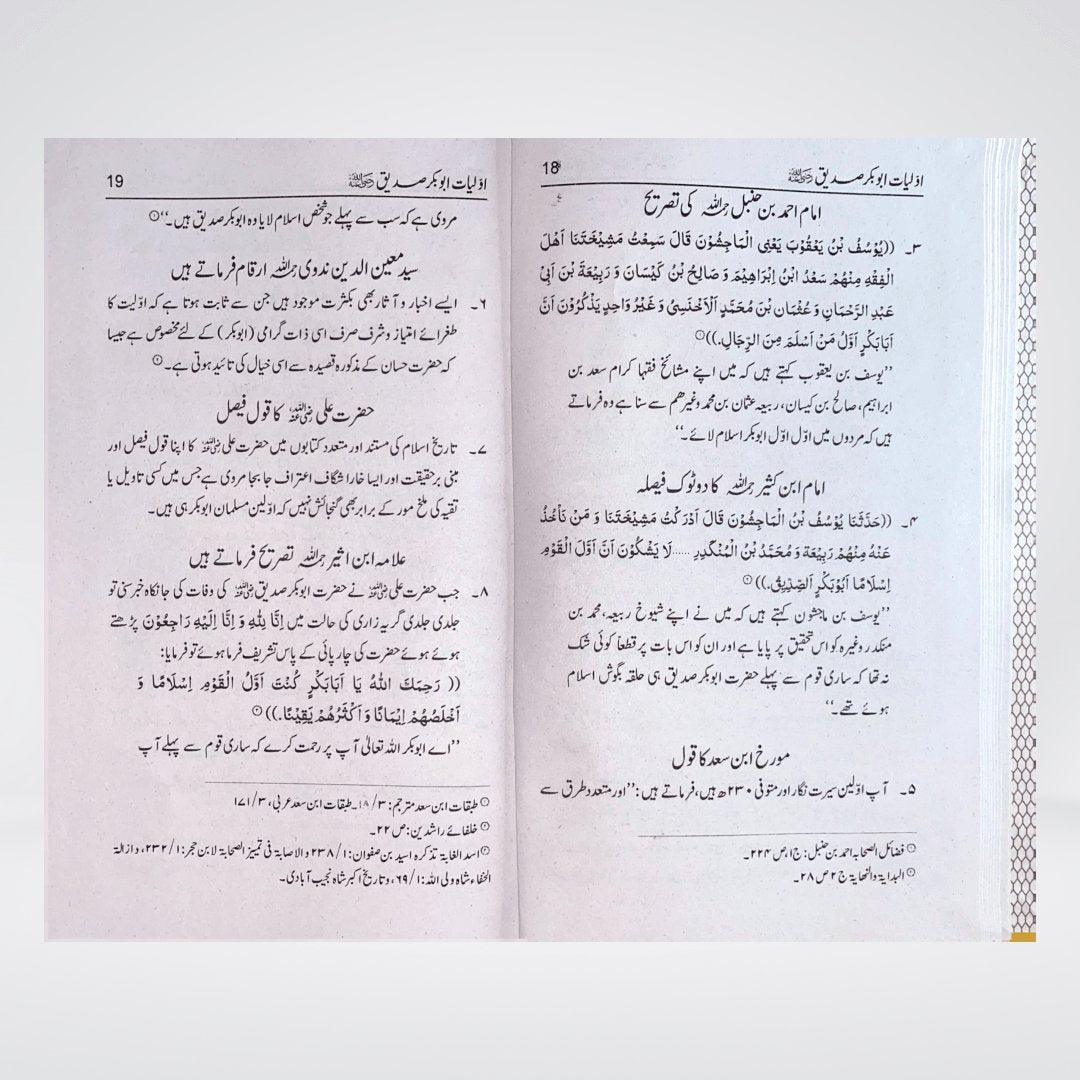 اوّلیات ابوبکر صدیق رضی اللہ عنہ
18
امام احمد بن حنبل رحمہ اللہ کی تصریح
۳۔ ((يُوْسُفُ بْنُ يَعْقُوْبَ يَعْنِي الْمَاجِشُوْنَ قَالَ سَمِعْتُ مَشِيْخَتَنَا اَهْلَ
الْفِقْهِ مِنْهُمْ سَعْدُ ابْنُ اِبْرَاهِيْمَ وَ صَالِحُ بْنُ كَيْسَانَ وَ رَبِيْعَةَ بْنَ اَبِيْ
عَبْدِ الرَّحْمَانِ وَ عُثْمَان بْنَ مُحَمَّدٍ اَلْاَخْنَسِيُّ وَ غَيْرُ وَاحِدٍ يَذْكُرُوْنَ اَنَّ
اَبَابَكْرٍ اَوَّلُ مَنْ اَسْلَمَ مِنَ الرِّجَالِ.))①
’’یوسف بن یعقوب کہتے ہیں کہ میں اپنے مشائخ فقہا کرام سعد بن
ابراہیم، صالح بن کیسان، ربیعہ عثمان بن محمد وغیرھم سے سنا ہے وہ فرماتے
ہیں کہ مردوں میں اوّل اوّل ابوبکر اسلام لائے۔‘‘
امام ابن کثیر رحمہ اللہ کا دوٹوک فیصلہ
۴۔ ((حَدَّثَنَا يُوْسُفُ بْنُ الْمَاجِشُوْنَ قَالَ اَدْرَكْتُ مَشِيْخَتَنَا وَ مَنْ نَأْخُذُ
عَنْهُ مِنْهُمْ رَبِيْعَةَ وَ مُحَمَّدُ بْنُ الْمُنْكَدِرِ ...... لَا يَشُكُوْنَ اَنَّ اَوَّلَ الْقَوْمِ
اِسْلَامًا اَبُوْبَكْرٍ اَلصِّدِيْقُ.))②
’’یوسف بن ماجشون کہتے ہیں کہ میں نے اپنے شیوخ ربیعہ، محمد بن
منکدر وغیرہ کو اس تحقیق پر پایا ہے اور ان کو اس بات پر قطعاً کوئی شک
نہ تھا کہ ساری قوم سے پہلے حضرت ابوبکر صدیق ہی حلقہ بگوش اسلام
ہوئے تھے۔‘‘
مورخ ابن سعد کا قول
۵۔ آپ اوّلین سیرت نگار اور متوفی ۲۳۰ھ ہیں، فرماتے ہیں: ’’اور متعدد طرق سے
① فضائل الصحابہ احمد بن حنبل: ج۱، ص ۲۲۴۔
② البدایۃ والنھایۃ ج ۲ ص ۲۸۔
اوّلیات ابوبکر صدیق رضی اللہ عنہ
19
مروی ہے کہ سب سے پہلے جو شخص اسلام لایا وہ ابوبکر صدیق ہیں۔‘‘①
سید معین الدین ندوی رحمہ اللہ ارقام فرماتے ہیں
۶۔ ایسے اخبار و آثار بھی بکثرت موجود ہیں جن سے ثابت ہوتا ہے کہ اوّلیت کا
طغرائے امتیاز و شرف صرف اسی ذات گرامی (ابوبکر) کے لئے مخصوص ہے جیسا
کہ حضرت حسان کے مذکورہ قصیدہ سے اسی خیال کی تائید ہوتی ہے۔②
حضرت علی رضی اللہ عنہ کا قول فیصل
۷۔ تاریخ اسلام کی مستند اور متعدد کتابوں میں حضرت علی رضی اللہ عنہ کا اپنا قول فیصل اور
مبنی برحقیقت اور ایسا خارا شگاف اعتراف جا بجا مروی ہے جس میں کسی تاویل یا
تقیہ کی ملخ مور کے برابر بھی گنجائش نہیں کہ اوّلین مسلمان ابوبکر ہی ہیں۔
علامہ ابن اثیر رحمہ اللہ تصریح فرماتے ہیں
۸۔ جب حضرت علی رضی اللہ عنہ نے حضرت ابوبکر صدیق رضی اللہ عنہ کی وفات کی جانکاہ خبر سنی تو
جلدی جلدی گریہ زاری کی حالت میں اِنَّا لِلّٰهِ وَ اِنَّا اِلَيْهِ رَاجِعُوْنَ پڑھتے
ہوئے ہوئے حضرت کی چارپائی کے پاس تشریف فرما ہوئے تو فرمایا:
(( رَحِمَكَ اللّٰهُ يَا اَبَابَكْرٍ كُنْتَ اَوَّلُ الْقَوْمِ اِسْلَامًا وَ
اَخْلَصُهُمْ اِيْمَانًا وَ اَكْثَرُهُمْ يَقِيْنًا.))③
’’اے ابوبکر اللہ تعالیٰ آپ پر رحمت کرے کہ ساری قوم سے پہلے آپ
① طبقات ابن سعد مترجم: ۱۸/۳۔ طبقات ابن سعد عربی، ۱۷۱/۳
② خلفائے راشدین: ص ۲۲۔
③ اسد الغابۃ تذکرہ اسید بن صفوان: ۲۳۸/۱ والاصابۃ فی تمییز الصحابۃ لابن حجر: ۲۳۲/۱، و ازالۃ
الخفاء شاہ ولی اللہ: ۶۹/۱، و تاریخ اکبر شاہ نجیب آبادی۔